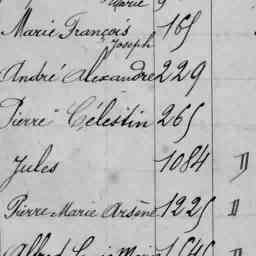 Marie 9
Marie François 165
Joseph
André Alexandre 229
Pierre Célestin 265
Jules 1084 "
Pierre Marie Arsène 1225 "